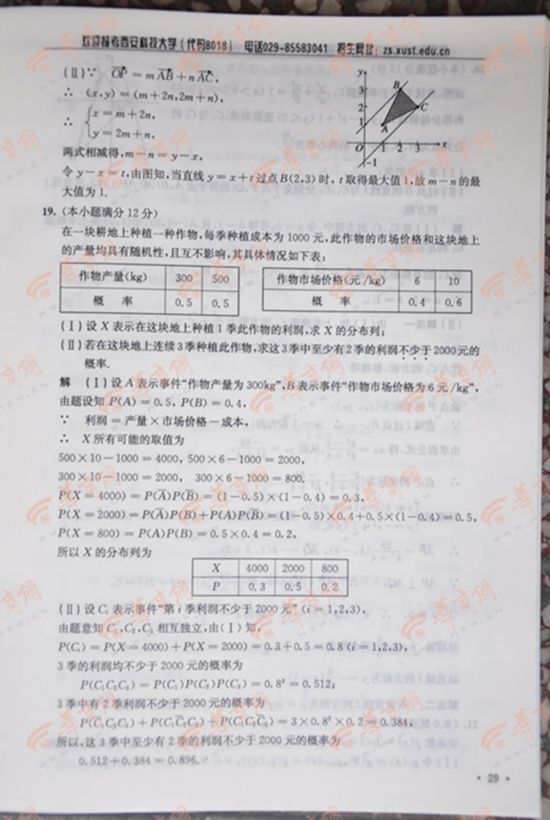 欢迎报考西安科技大学(代码8018) 电话029-85583041 招生网址:zs.xust.edu.cn
(Ⅱ)∵ OP = mAB + nAC,
∴ (x,y) = (m+2n,2m+n),
∴ { x = m+2n,
y = 2m+n,
两式相减得,m-n = y-x,
令 y-x = t,由图知,当直线 y = x+t 过点 B(2,3) 时,t 取得最大值 1,故 m-n 的最
大值为 1.
y
3
2
1
O
1 2 3
x
-1
A
B
C
19. (本小题满分 12 分)
在一块耕地上种植一种作物,每季种植成本为 1000 元,此作物的市场价格和这块地上
的产量均具有随机性,且互不影响,其具体情况如下表:
作物产量(kg) 300 500
概 率 0.5 0.5
作物市场价格(元/kg) 6 10
概 率 0.4 0.6
(Ⅰ)设 X 表示在这块地上种植 1 季此作物的利润,求 X 的分布列;
(Ⅱ)若在这块地上连续 3 季种植此作物,求这 3 季中至少有 2 季的利润不少于 2000 元的
概率.
解 (Ⅰ)设 A 表示事件“作物产量为 300kg”,B 表示事件“作物市场价格为 6 元/kg”,
由题设知 P(A) = 0.5, P(B) = 0.4,
∵ 利润 = 产量×市场价格-成本,
∴ X 所有可能的取值为
500×10-1000 = 4000, 500×6-1000 = 2000,
300×10-1000 = 2000, 300×6-1000 = 800.
P(X = 4000) = P(A̅)P(B̅) = (1-0.5)×(1-0.4) = 0.3,
P(X = 2000) = P(A̅)P(B)+P(A)P(B̅) = (1-0.5)×0.4+0.5×(1-0.4) = 0.5,
P(X = 800) = P(A)P(B) = 0.5×0.4 = 0.2,
所以 X 的分布列为
X 4000 2000 800
P 0.3 0.5 0.2
(Ⅱ)设 Cᵢ 表示事件“第 i 季利润不少于 2000 元” (i = 1,2,3),
由题意知 C₁,C₂,C₃ 相互独立,由(Ⅰ)知,
P(Cᵢ) = P(X = 4000) + P(X = 2000) = 0.3+0.5 = 0.8 (i = 1,2,3),
3 季的利润均不少于 2000 元的概率为
P(C₁C₂C₃) = P(C₁)P(C₂)P(C₃) = 0.8³ = 0.512;
3 季中有 2 季利润不少于 2000 元的概率为
P(C̅₁C₂C₃) + P(C₁C̅₂C₃) + P(C₁C₂C̅₃) = 3×0.8²×0.2 = 0.384,
所以,这 3 季中至少有 2 季的利润不少于 2000 元的概率为
0.512+0.384 = 0.896.
· 29 ·